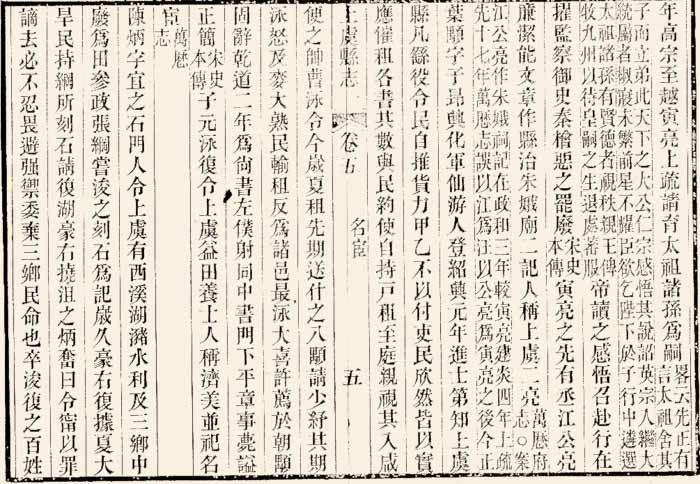 年高宗至越寅亮上疏請育太祖諸孫爲嗣畧云先正有言太祖舍其
子而立弟此天下之大公仁宗感悟其說詔英宗入繼大
統屬者椒寢未繁前星不耀臣欲乞陛下於子行中遴選
太祖諸孫有賢德者視秩親王俾
牧九州以待皇嗣之生退處藩服帝讀之感悟召赴行在
擢監察御史秦檜惡之罷廢宋史本傳寅亮之先有丞江公亮
廉潔能文章作縣治朱娥廟二記人稱上虞二亮萬厯府志○案
江公亮作朱娥祠記在政和三年較寅亮建炎四年上疏
先十七年萬厯志誤以江爲汪以公亮爲寅亮之後今正
葉顒字子昂興化軍仙游人登紹興元年進士第知上虞
縣凡繇役令民自推貨力甲乙不以付吏民欣然皆以實
應催租各書其數與民約使自持戶租至庭親視其入咸
上虞縣志 卷五 名宦 五
便之帥曹泳令今歲夏租先期送什之八顒請少紓其期
泳怒及麥大熟民輸租反爲諸邑最泳大喜許薦於朝顒
固辭乾道二年爲尙書左僕射同中書門下平章事薨諡
正簡宋史本傳子元泳復令上虞益田養士人稱濟美並祀名
宦萬厯志
陳炳字宜之石門人令上虞有西溪湖瀦水利及三鄉中
廢爲田參政張綱嘗浚之刻石爲記嵗久豪右復據夏大
旱民持綱所刻石請復湖豪右撓沮之炳奮曰令甯以罪
謫去必不忍畏避强禦委棄三鄉民命也卒浚復之百姓